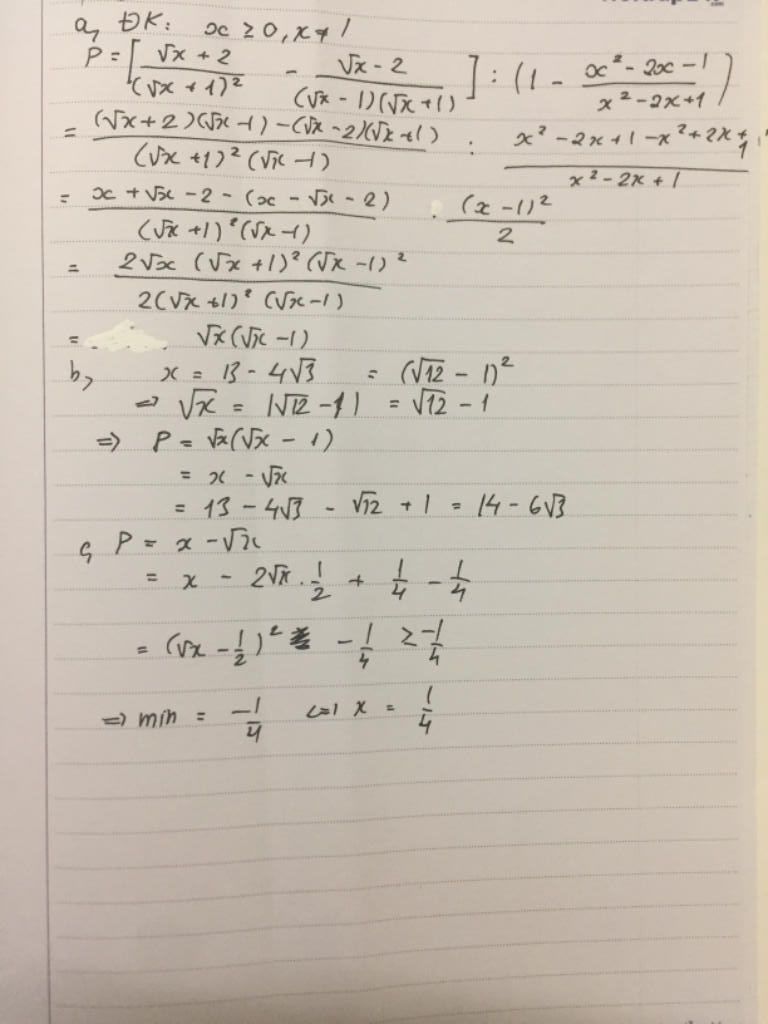 a, ĐK: x ≥ 0, x ≠ 1
P = [ (√x + 2)/(√x + 1)² - (√x - 2)/((√x - 1)(√x + 1)) ] : (1 - (x² - 2x - 1)/(x² - 2x + 1))
= ((√x + 2)(√x - 1) - (√x - 2)(√x + 1))/((√x + 1)² (√x - 1)) : (x² - 2x + 1 - x² + 2x + 1)/(x² - 2x + 1)
= (x + √x - 2 - (x - √x - 2))/((√x + 1)² (√x - 1)) . (x - 1)²/2
= (2√x (√x + 1)² (√x - 1)²)/(2(√x + 1)² (√x - 1))
= √x(√x - 1)
b, x = 13 - 4√3 = (√12 - 1)²
=> √x = |√12 - 1| = √12 - 1
=> P = √x(√x - 1)
= x - √x
= 13 - 4√3 - √12 + 1 = 14 - 6√3
c, P = x - √x
= x - 2√x . 1/2 + 1/4 - 1/4
= (√x - 1/2)² - 1/4 ≥ -1/4
=> min = -1/4 <=> x = 1/4